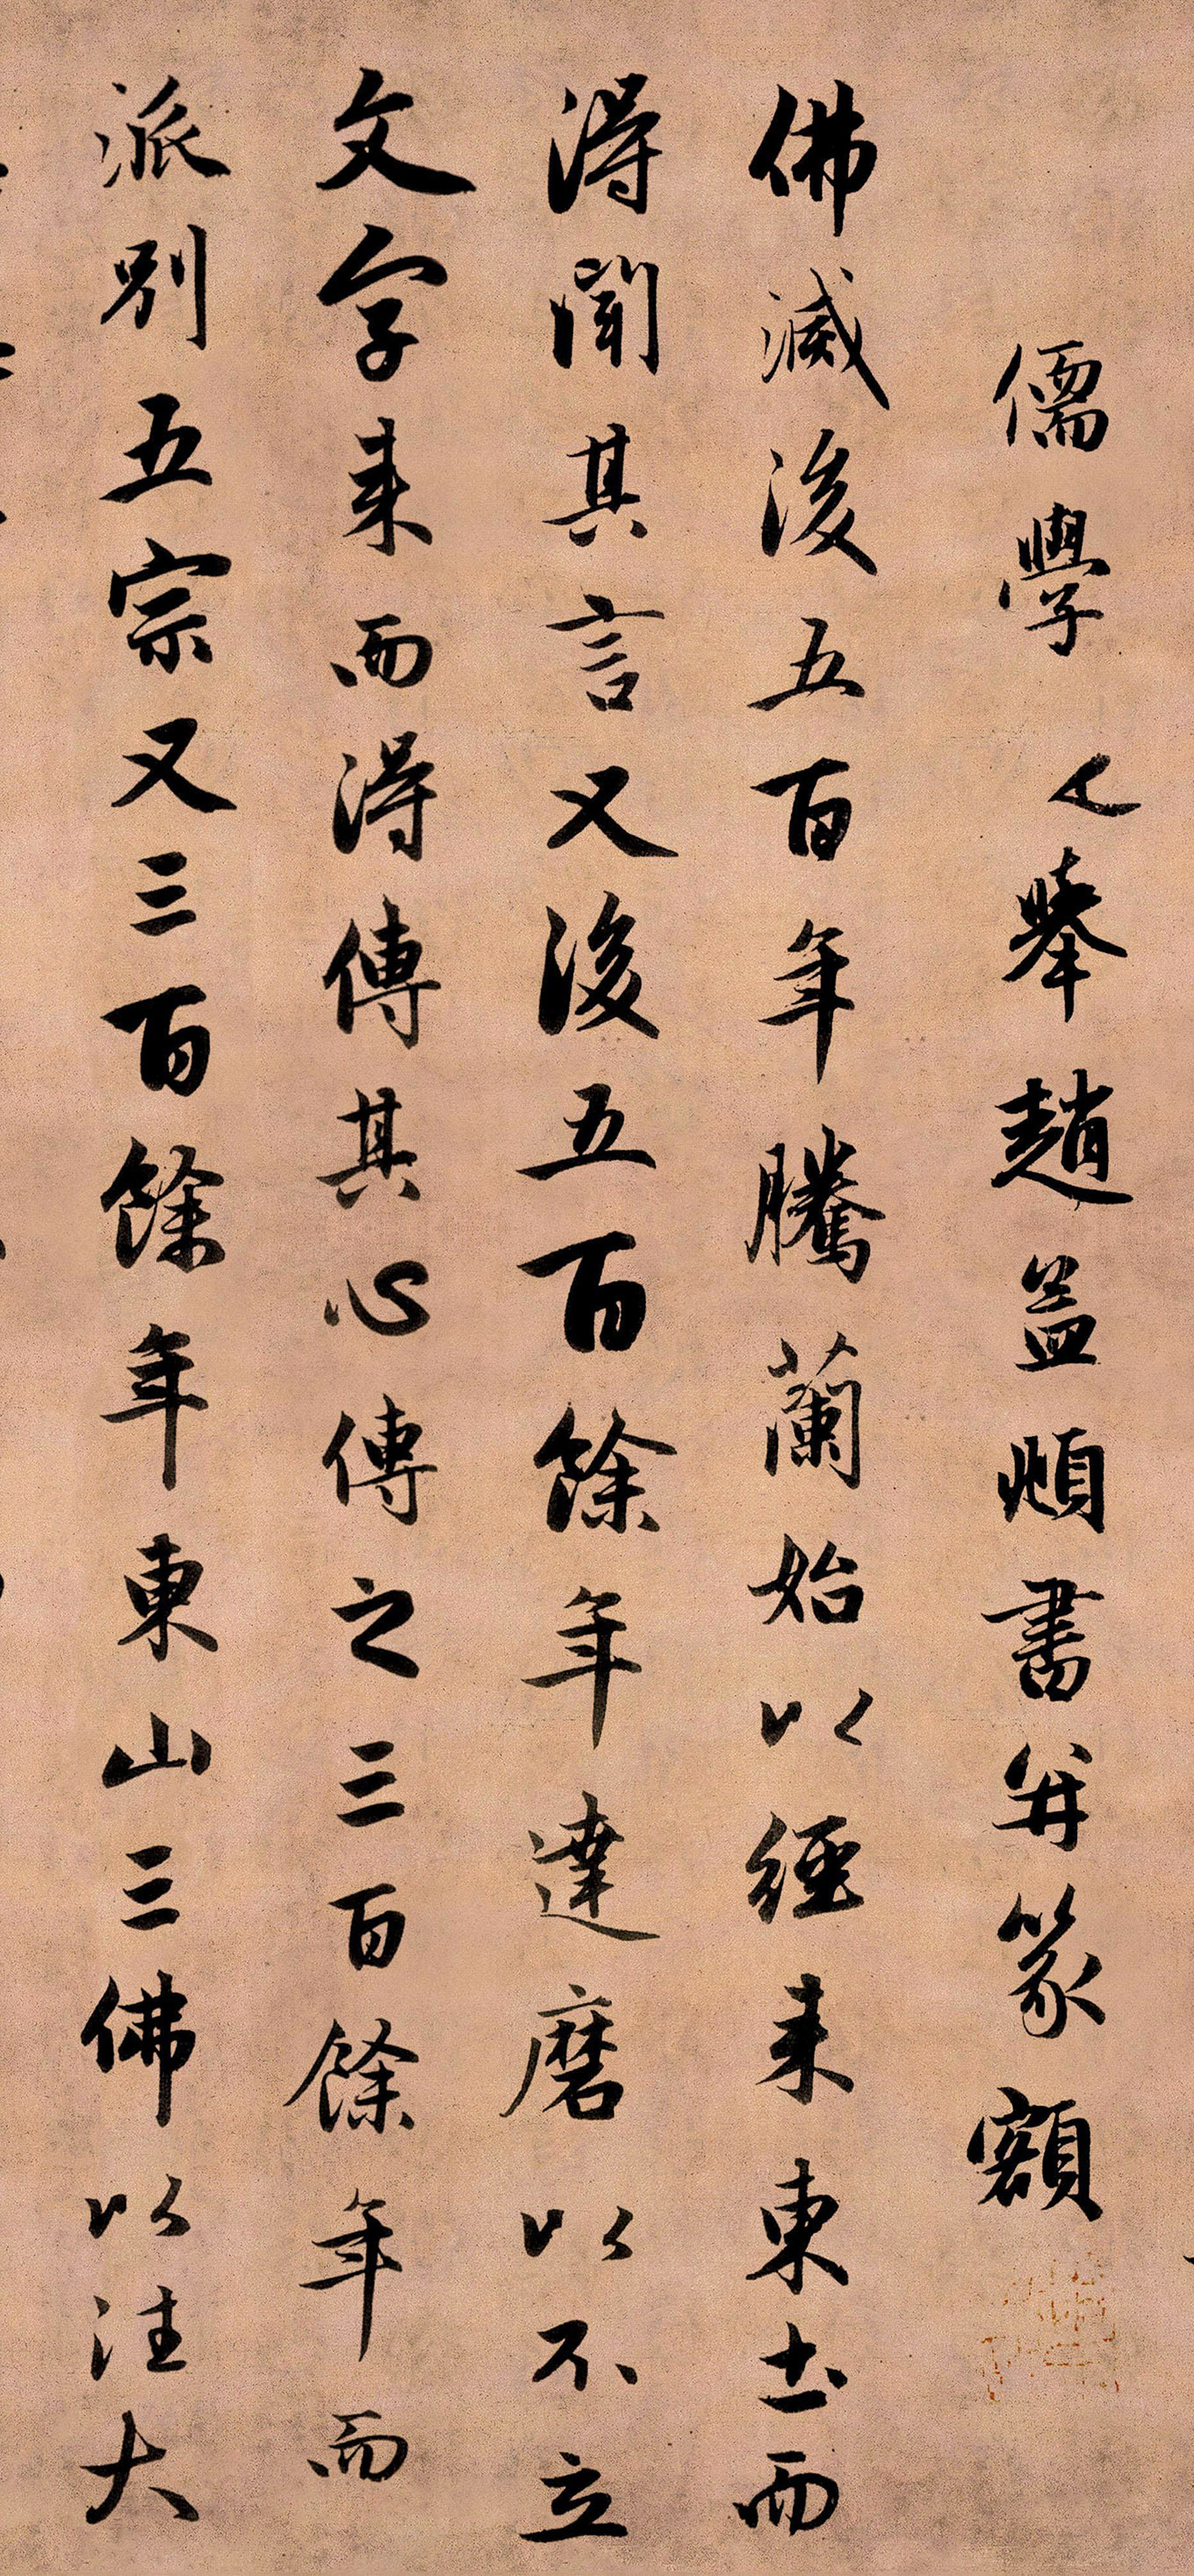 儒學舉趙孟頫書并篆額
佛滅後五百年騰蘭始以經来東土而
得聞其言又後五百餘年達磨以不立
文字来而得傳其心傳之三百餘年而
派別五宗又三百餘年東山三佛以法大